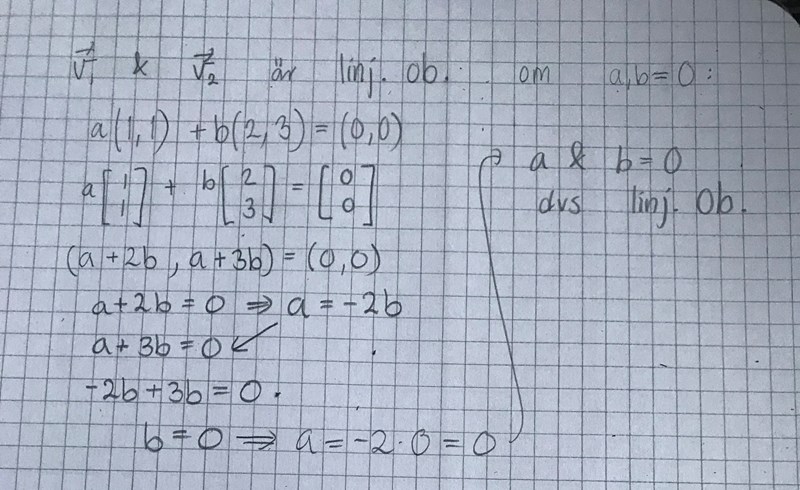 v⃗₁ & v⃗₂ är linj. ob. om a,b=0:
a(1,1) + b(2,3) = (0,0)
a[1 1] + b[2 3] = [0 0]
(a+2b, a+3b) = (0,0)
a+2b = 0 ⇒ a = -2b
a+3b = 0 ↙
-2b+3b = 0.
b = 0 ⇒ a = -2·0 = 0
→ a & b = 0
dvs linj. ob.